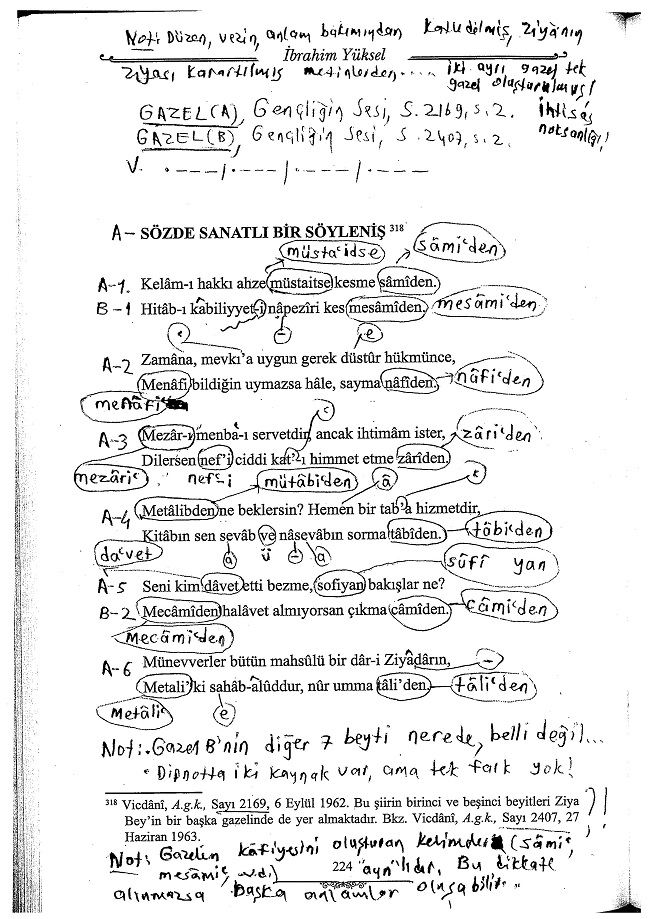 Not: Düzen, vezin, anlam bakımından katledilmiş, Ziyâ'nın
İbrahim Yüksel
ziyası karartılmış metinlerden.... iki ayrı gazel tek
gazel oluşturulmuş!
GAZEL(A), Gençliğin Sesi, S.2169, s.2. İhtisas
GAZEL(B), Gençliğin Sesi, S.2407, s.2. noksanlığı!
V. .---/.---/.---/.---
A- SÖZDE SANATLI BİR SÖYLENİŞ 318
müsta'idse sâmi'den
A-1. Kelâm-ı hakkı ahze müstaitse kesme sâmîden.
B-1 Hitâb-ı kabiliyyet-i nâpezîri kes mesâmîden. mesâmi'den
e
A-2 Zamâna, mevkı'a uygun gerek düstûr hükmünce,
Menâfi bildiğin uymazsa hâle, sayma nâfîden. nâfi'den
menâfi'
A-3 Mezâr-ı menba-ı servetdir, ancak ihtimâm ister, zâri'den
Dilersen nef'i ciddi kat'-ı himmet etme zârîden.
mezâri' nef'-i mütâbi'den â
A-4 Metâlibden ne beklersin? Hemen bir tab'a hizmetdir,
Kitâbın sen sevâb ve nâsevâbın sorma tâbîden. tâbi'den
da'vet a ü - a sûfî yan
A-5 Seni kim dâvet etti bezme, sofiyan bakışlar ne?
B-2 Mecâmîden halâvet almıyorsan çıkma câmîden. câmi'den
Mecâmi'den
A-6 Münevverler bütün mahsûlü bir dâr-i Ziyâdârın, -
Metali'ki sahâb-âlûddur, nûr umma tâli'den. tâli'den
Metâli' e
Not: Gazel B'nin diğer 7 beyti nerede, belli değil...
• Dipnotta iki kaynak var, ama tek fark yok!
318 Vicdânî, A.g.k., Sayı 2169, 6 Eylül 1962. Bu şiirin birinci ve beşinci beyitleri Ziya
Bey'in bir başka gazelinde de yer almaktadır. Bkz. Vicdânî, A.g.k., Sayı 2407, 27
Haziran 1963.
Not: Gazelin kâfiyesini oluşturan kelimeler (sâmi',
mesâmi', v.d.) 224 "ayn"lıdır. Bu dikkate
alınmazsa başka anlamlar oluşabilir.